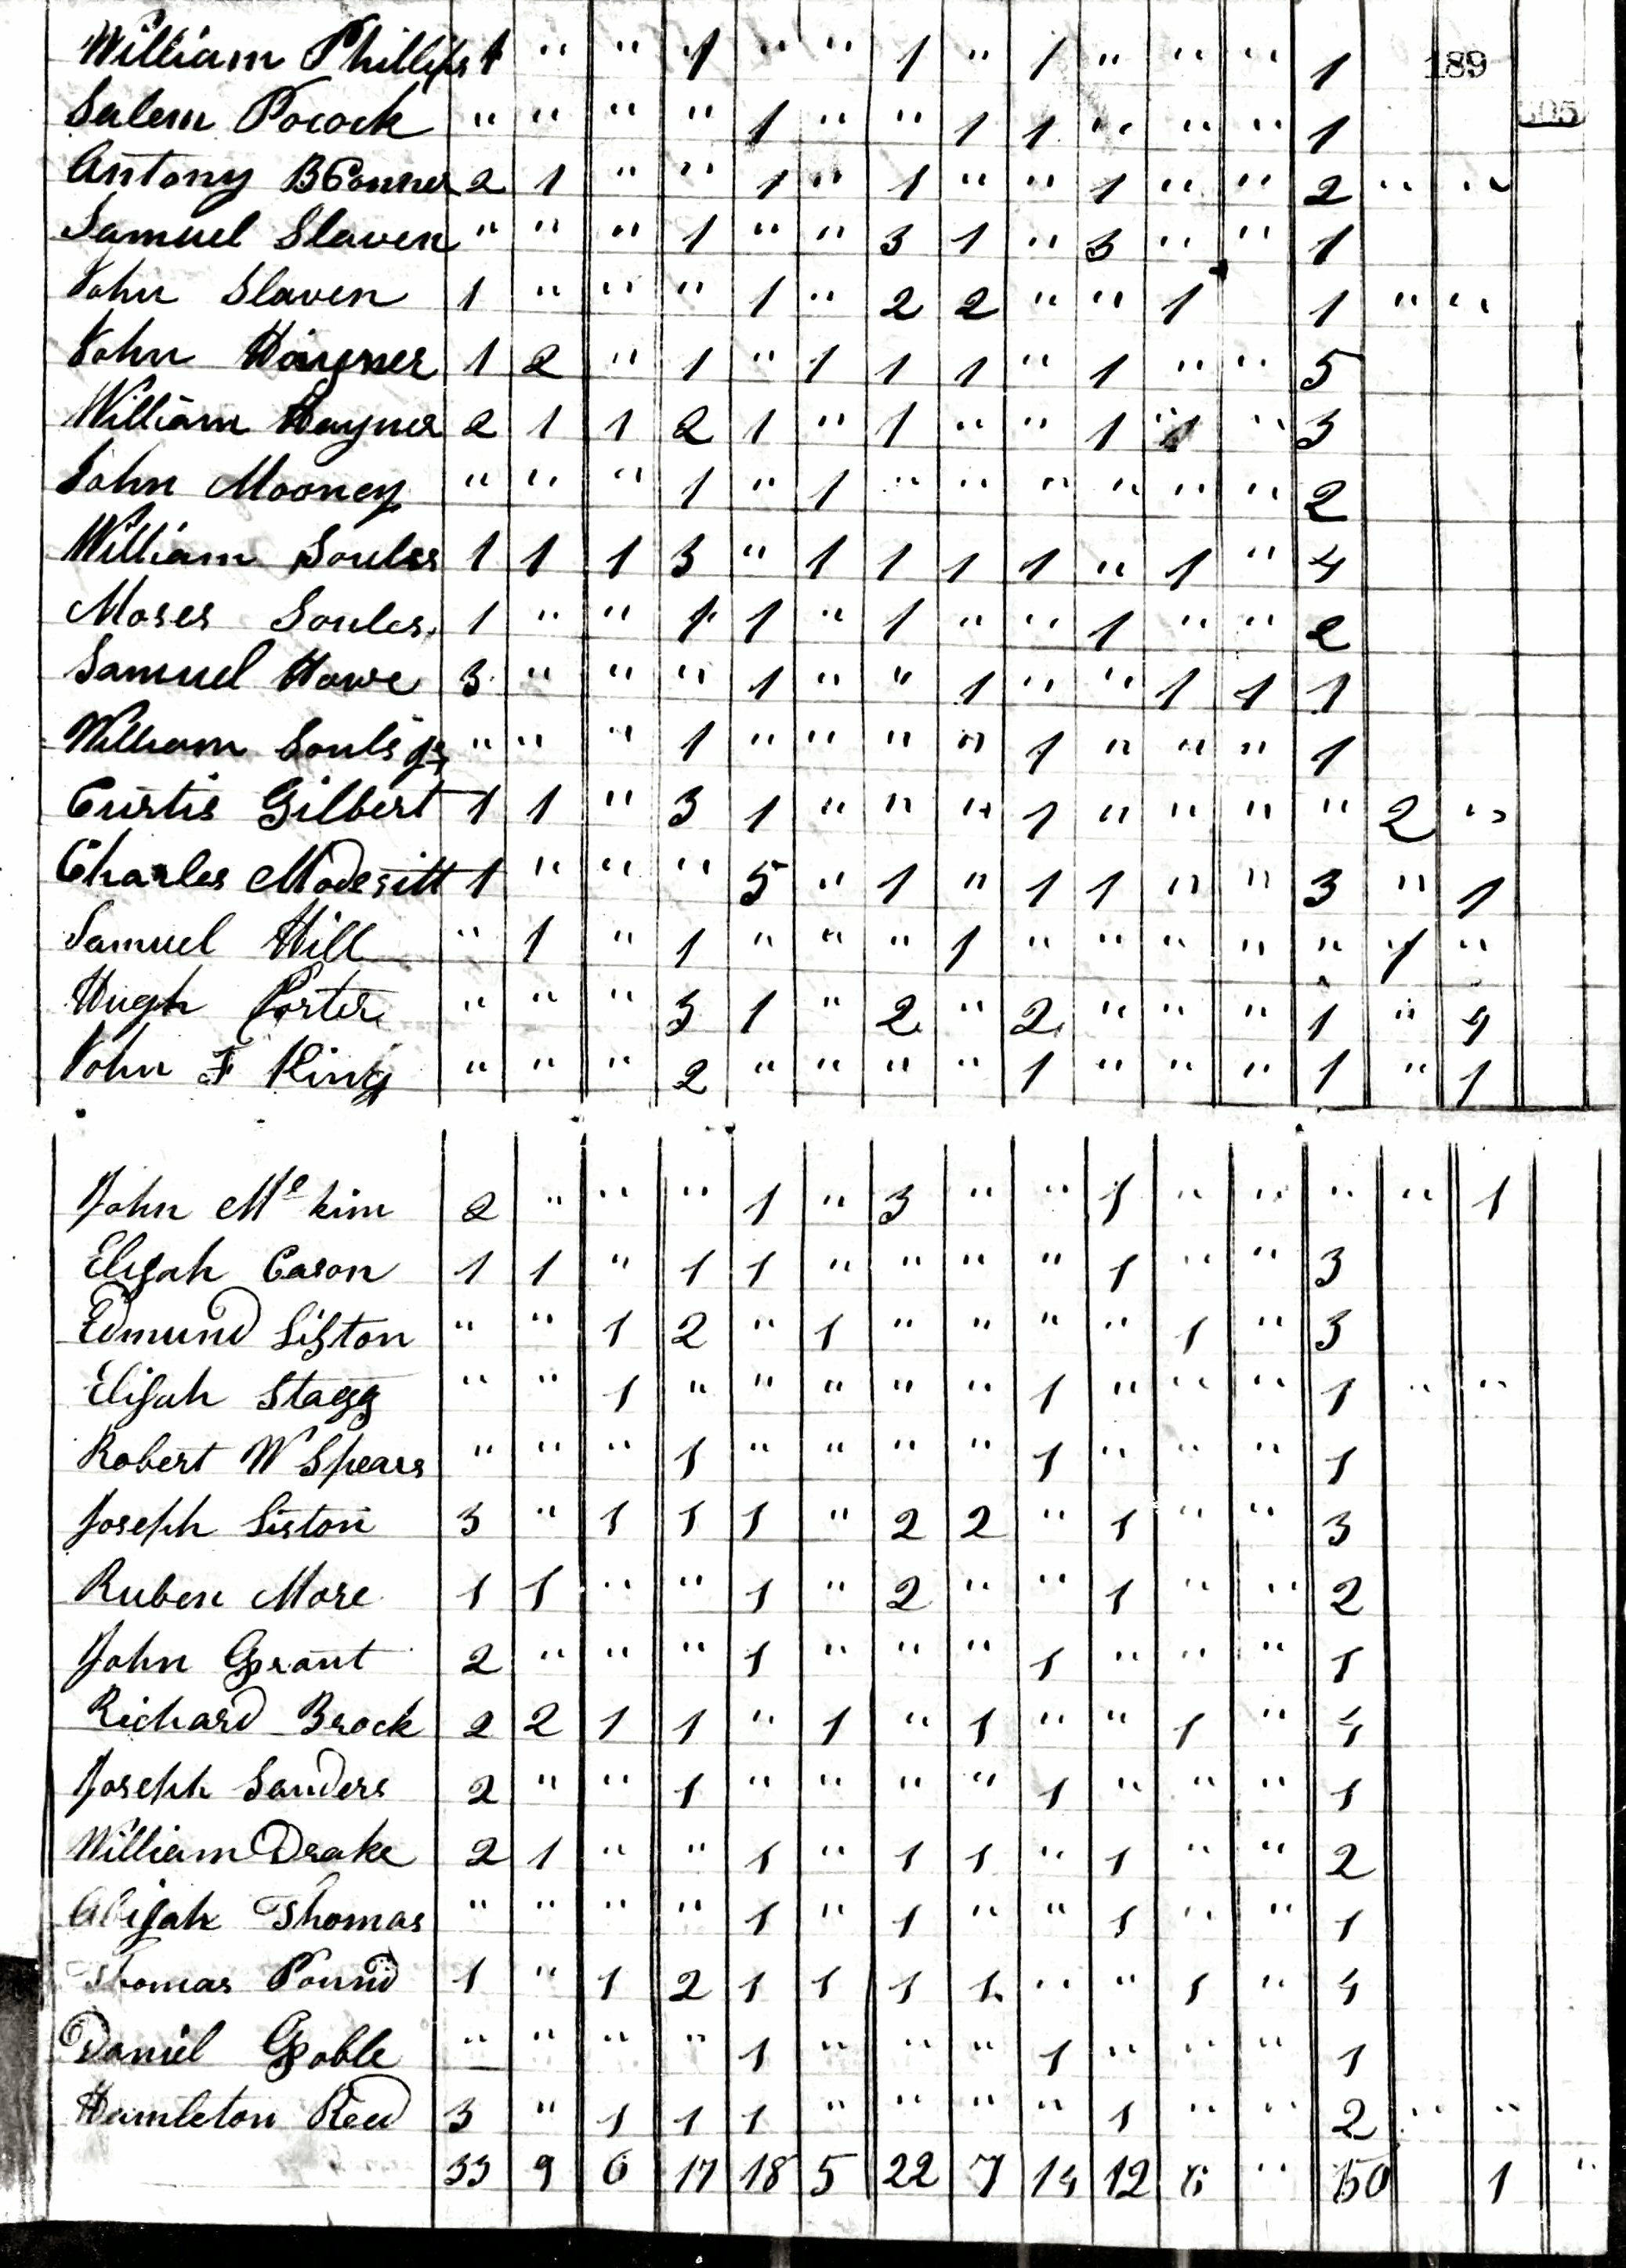 William Phillips 1 " " 1 " " 1 " 1 " " " 1 189
Salem Pocock " " " " 1 " " 1 1 " " " 1 505
Antony B Conner 2 1 " " 1 " 1 " " 1 " " 2 " "
Samuel Slaven " " " 1 " " 3 1 " 3 " " 1
John Slaven 1 " " " 1 " 2 2 " " 1 1 " "
John Haymer 1 2 " 1 " 1 1 1 " 1 " " 5
William Haymer 2 1 1 2 1 " 1 " " 1 " 1 " 3
John Mooney " " " 1 " 1 " " " " " " 2
William Soules 1 1 1 3 " 1 1 1 1 " 1 " 4
Moses Soules 1 " " 1 1 " 1 " " 1 " " 2
Samuel Howe 3 " " " 1 " " 1 " " 1 1 1
William Souls jr " " " 1 " " " " 1 " " " 1
Curtis Gilbert 1 1 " 3 1 " " " 1 " " " " 2 "
Charles Modesitt 1 " " " 5 " 1 " 1 1 " " 3 " 1
Samuel Hill " 1 " 1 " " " 1 " " " " " 1 "
Hugh Porter " " " 3 1 " 2 " 2 " " " 1 " 4
John F King " " " 2 " " " " 1 " " " 1 " 1
John Mc kim 2 " " " 1 " 3 " " 1 " " " " 1
Elijah Cason 1 1 " 1 1 " " " " 1 " " 3
Edmund Liston " " 1 2 " 1 " " " " 1 " 3
Elijah Stagg " " 1 " " " " " 1 " " " 1 " "
Robert W Spears " " " 1 " " " " 1 " " " 1
Joseph Liston 3 " 1 1 1 " 2 2 " 1 " " 3
Ruben More 1 1 " " 1 " 2 " " 1 " " 2
John Grant 2 " " " 1 " " " 1 " " " 1
Richard Brock 2 2 1 1 " 1 " 1 " " 1 " 4
Joseph Sanders 2 " " 1 " " " " 1 " " " 1
William Drake 2 1 " " 1 " 1 1 " 1 " " 2
Abijah Thomas " " " " 1 " 1 " " 1 " " 1
Thomas Pound 1 " 1 2 1 1 1 1 " " 1 " 4
Daniel Goble " " " " 1 " " " 1 " " " 1
Hamleton Reed 3 " 1 1 1 " " " " 1 " " 2 " "
33 9 6 17 18 5 22 7 14 12 6 " 50 1 "